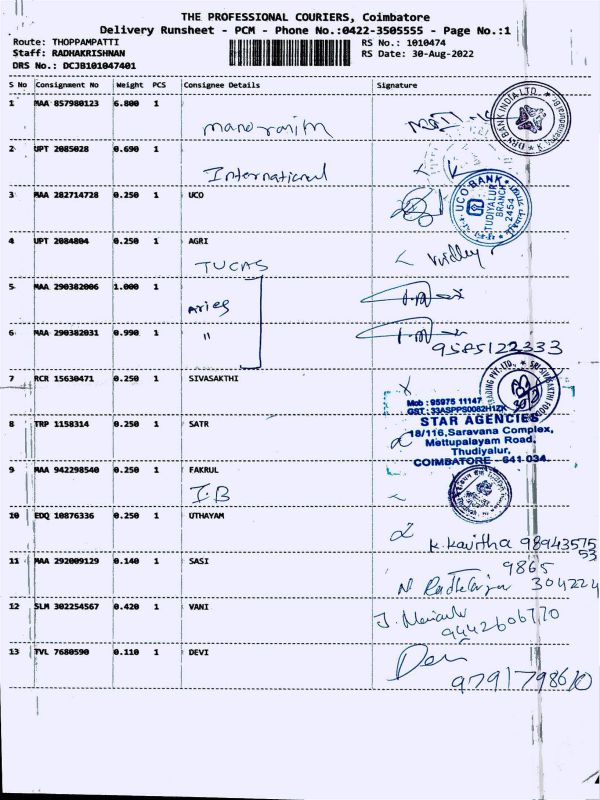 THE PROFESSIONAL COURIERS, Coimbatore
Delivery Runsheet - PCM - Phone No.:0422-3505555 - Page No.:1
Route: THOPPAMPATTI
Staff: RADHAKRISHNAN
DRS No.: DCJB101047401
RS No.: 1010474
RS Date: 30-Aug-2022
S No Consignment No Weight PCS Consignee Details Signature
1 MAA 857980123 6.800 1
DRY BANK INDIA LTD.
2 UPT 2085028 0.690 1 International
3 MAA 282714728 0.250 1 UCO
UCO BANK
TUDIYALUR
BRANCH
2454
4 UPT 2084804 0.250 1 AGRI
TUCAS
5 MAA 290382006 1.000 1 Aries
6 MAA 290382031 0.990 1 "
9585122333
7 RCR 15630471 0.250 1 SIVASAKTHI
TRADING PVT. LTD. SRI SIVASAKTHI FOODS
Mob : 95975 11147
GST : 33ASPPS0082H1ZK
STAR AGENCIES
18/116, Saravana Complex,
Mettupalayam Road,
Thudiyalur,
COIMBATORE - 641 034.
8 TRP 1158314 0.250 1 SATR
9 MAA 942298540 0.250 1 FAKRUL
I.B
10 EDQ 10876336 0.250 1 UTHAYAM
K. Kavitha 98943575
53
11 MAA 292009129 0.140 1 SASI
9865
304224
12 SLM 302254567 0.420 1 VANI
9442606770
13 TVL 7680590 0.110 1 DEVI
9791798610